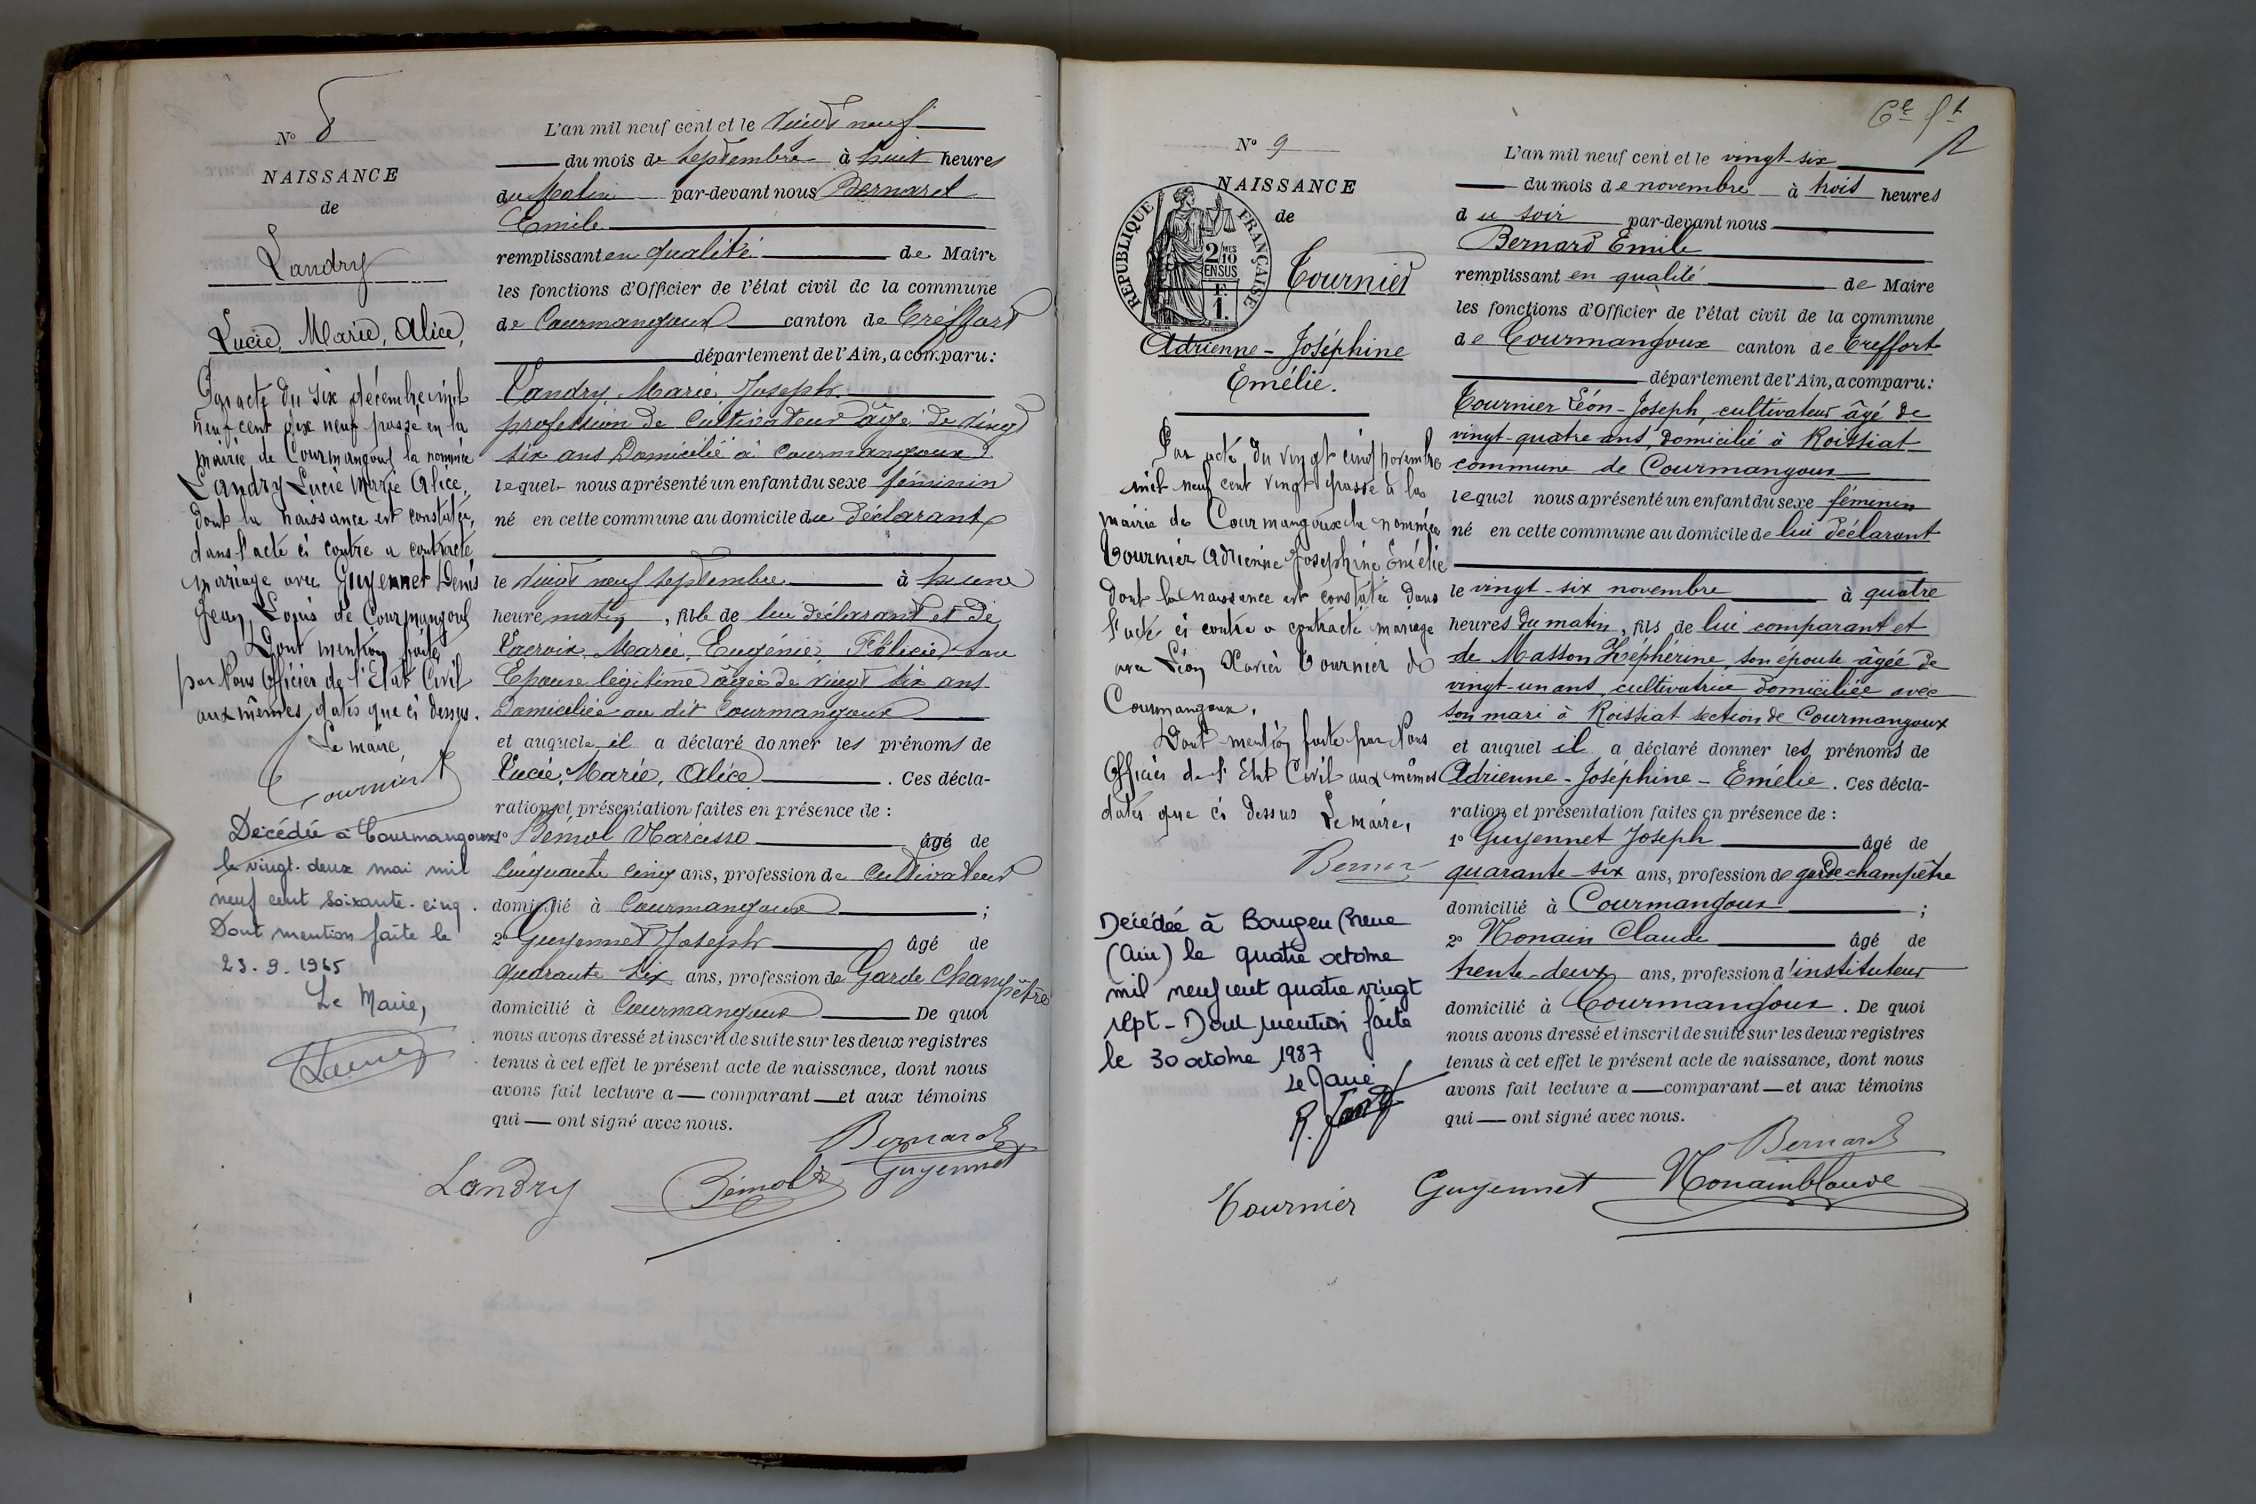 N° 8
NAISSANCE
de
Landry
Lucie, Marie, Alice,
Par acte du six décembre mil
neuf cent dix neuf passé en la
mairie de Courmangoux la nommée
Landry Lucie Marie Alice,
dont la naissance est constatée,
dans l'acte ci contre a contracté
mariage avec Guyennet Denis
Jean, Louis de Courmangoux
Dont mention faite
par Nous Officier de l'Etat Civil
aux mêmes dates que ci dessus.
Le maire
Tournier
Décédée à Courmangoux
le vingt-deux mai mil
neuf cent soixante-cinq.
Dont mention faite le
23.9.1965
Le Maire,
L'an mil neuf cent et le vingt neuf
du mois de Septembre à huit heures
du Matin par-devant nous Bernard
Emile
remplissant en qualité de Maire
les fonctions d'Officier de l'état civil de la commune
de Courmangoux canton de Treffort
département de l'Ain, a comparu:
Landry, Marie, Joseph.
profession de Cultivateur âgé de vingt
six ans Domicilié à Courmangoux
lequel nous a présenté un enfant du sexe féminin
né en cette commune au domicile du Déclarant
le vingt neuf Septembre à une
heure matin, fils de lui déclarant et de
Lacroix, Marie, Eugénie, Félicie sa
Epouse légitime âgée de vingt six ans
Domiciliée au dit Courmangoux
et auquel il a déclaré donner les prénoms de
Lucie, Marie, Alice. Ces décla-
ration et présentation faites en présence de :
1° Bémol Narcisse âgé de
Cinquante cinq ans, profession de Cultivateur
domicilié à Courmangoux ;
2° Guyennet Joseph âgé de
quarante six ans, profession de Garde Champêtre
domicilié à Courmangoux De quoi
nous avons dressé et inscrit de suite sur les deux registres
tenus à cet effet le présent acte de naissance, dont nous
avons fait lecture a — comparant — et aux témoins
qui — ont signé avec nous.
Bernard
Landry Bémol Guyennet
N° 9
NAISSANCE
de
RÉPUBLIQUE FRANÇAISE
2 MES
10
EN SUS
1.
Tournier
Adrienne-Joséphine
Emélie.
Par acte du vingt cinq novembre
mil neuf cent vingt passé à la
mairie de Courmangoux la nommée
Tournier Adrienne Joséphine Emélie
dont la naissance est constatée dans
l'acte ci contre a contracté mariage
avec Léon Xavier Tournier de
Courmangoux.
Dont mention faite par Nous
Officier de l'Etat Civil aux mêmes
dates que ci dessus Le maire,
Décédée à Bourg en Bresse
(Ain) le quatre octobre
mil neuf cent quatre vingt
sept - Dont mention faite
le 30 octobre 1987
Le Maire
L'an mil neuf cent et le vingt-six
du mois de novembre à trois heures
du soir par-devant nous
Bernard Emile
remplissant en qualité de Maire
les fonctions d'Officier de l'état civil de la commune
de Courmangoux canton de Treffort
département de l'Ain, a comparu:
Tournier Léon-Joseph, cultivateur âgé de
vingt-quatre ans, domicilié à Roissiat
commune de Courmangoux
lequel nous a présenté un enfant du sexe féminin
né en cette commune au domicile de lui déclarant
le vingt-six novembre à quatre
heures du matin, fils de lui comparant et
de Masson Zéphérine, son épouse âgée de
vingt-un ans, cultivatrice domiciliée avec
son mari à Roissiat section de Courmangoux
et auquel il a déclaré donner les prénoms de
Adrienne-Joséphine-Emélie. Ces décla-
ration et présentation faites en présence de :
1° Guyennet Joseph âgé de
quarante-six ans, profession de garde champêtre
domicilié à Courmangoux ;
2° Nonain Claude âgé de
trente-deux ans, profession d'instituteur
domicilié à Courmangoux. De quoi
nous avons dressé et inscrit de suite sur les deux registres
tenus à cet effet le présent acte de naissance, dont nous
avons fait lecture a — comparant — et aux témoins
qui — ont signé avec nous.
Bernard
Tournier Guyennet Nonain Claude